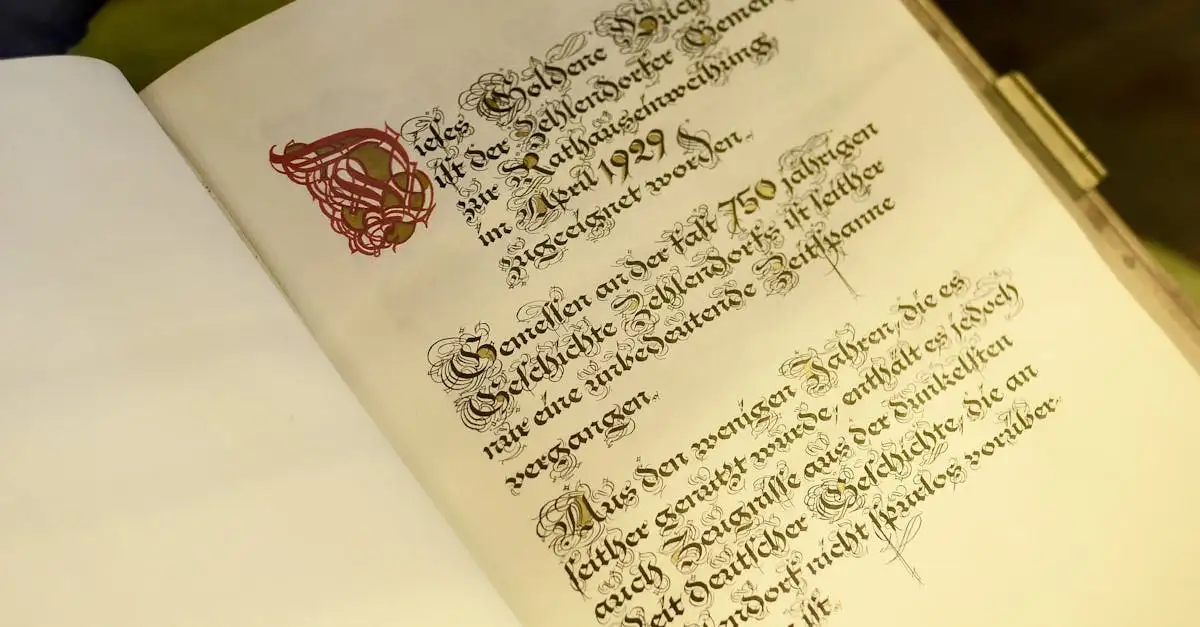 Dieses Goldene Buch
ist der Zehlendorfer Gemein
zur Rathauseinweihung
im April 1929
zugeeignet worden.
Gemessen an der fast 750 jährigen
Geschichte Zehlendorfs ist seither
nur eine unbedeutende Zeitspanne
vergangen.
Aus den wenigen Jahren, die es
seither genutzt wurde, enthält es jedoch
auch Zeugnisse aus der dunkelsten
Zeit deutscher Geschichte, die an
lendorf nicht spurlos vorüber
ist